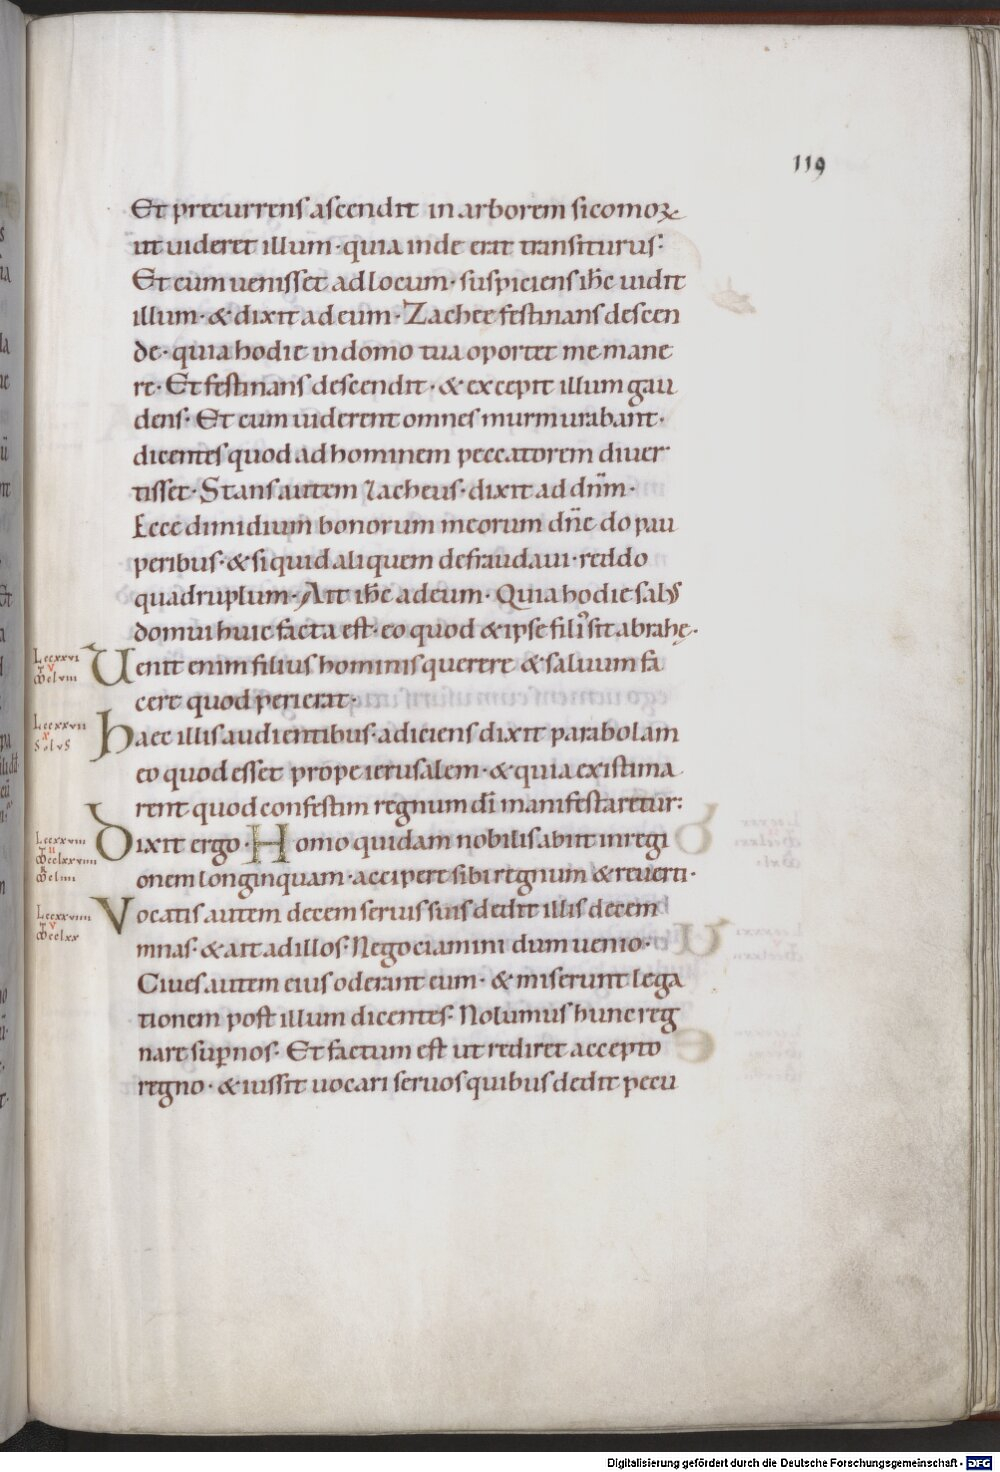 119
Et precurrens ascendit in arborem sicomorẽ
ut uideret illum · quia inde erat transiturus:
Et cum uenisset ad locum · suspiciens ih̄c uidit
illum · & dixit ad eum · Zachee festinans descen
de · quia hodie in domo tua oportet me mane
re · Et festinans descendit · & excepit illum gau
dens · Et cum uiderent omnes murmurabant ·
dicentes quod ad hominem peccatorem diuer
tisset · Stans autem zacheus · dixit ad dnm̄ ·
Ecce dimidium bonorum meorum dn̄e do pau
peribus · & si quid aliquem defraudaui · reddo
quadruplum · Ait ih̄c ad eum · Quia hodie salus
domui huic facta est · eo quod & ipse fili᾽ sit abrahę ·
Lccxxvi
Uenit enim filius hominis querere & saluum fa
cere quod perierat ·
Lccxxvii
x
Solus
haec illis audientibus · adiciens dixit parabolam
eo quod esset prope ierusalem · & quia existima
rent quod confestim regnum dī manifestaretur:
Lccxxviii
Dixit ergo · Homo quidam nobilis abiit in regi
onem longinquam · accipere sibi regnum & reuerti ·
Lccxxviiii
Vocatis autem decem seruis suis dedit illis decem
mnas · & ait ad illos · Negociamini dum uenio ·
Ciues autem eius oderant eum · & miserunt lega
tionem post illum dicentes · Nolumus hunc reg
nare sup̄ nos · Et factum est ut rediret accepto
regno · & iussit uocari seruos quibus dedit pecu
Digitalisierung gefördert durch die Deutsche Forschungsgemeinschaft - DFG